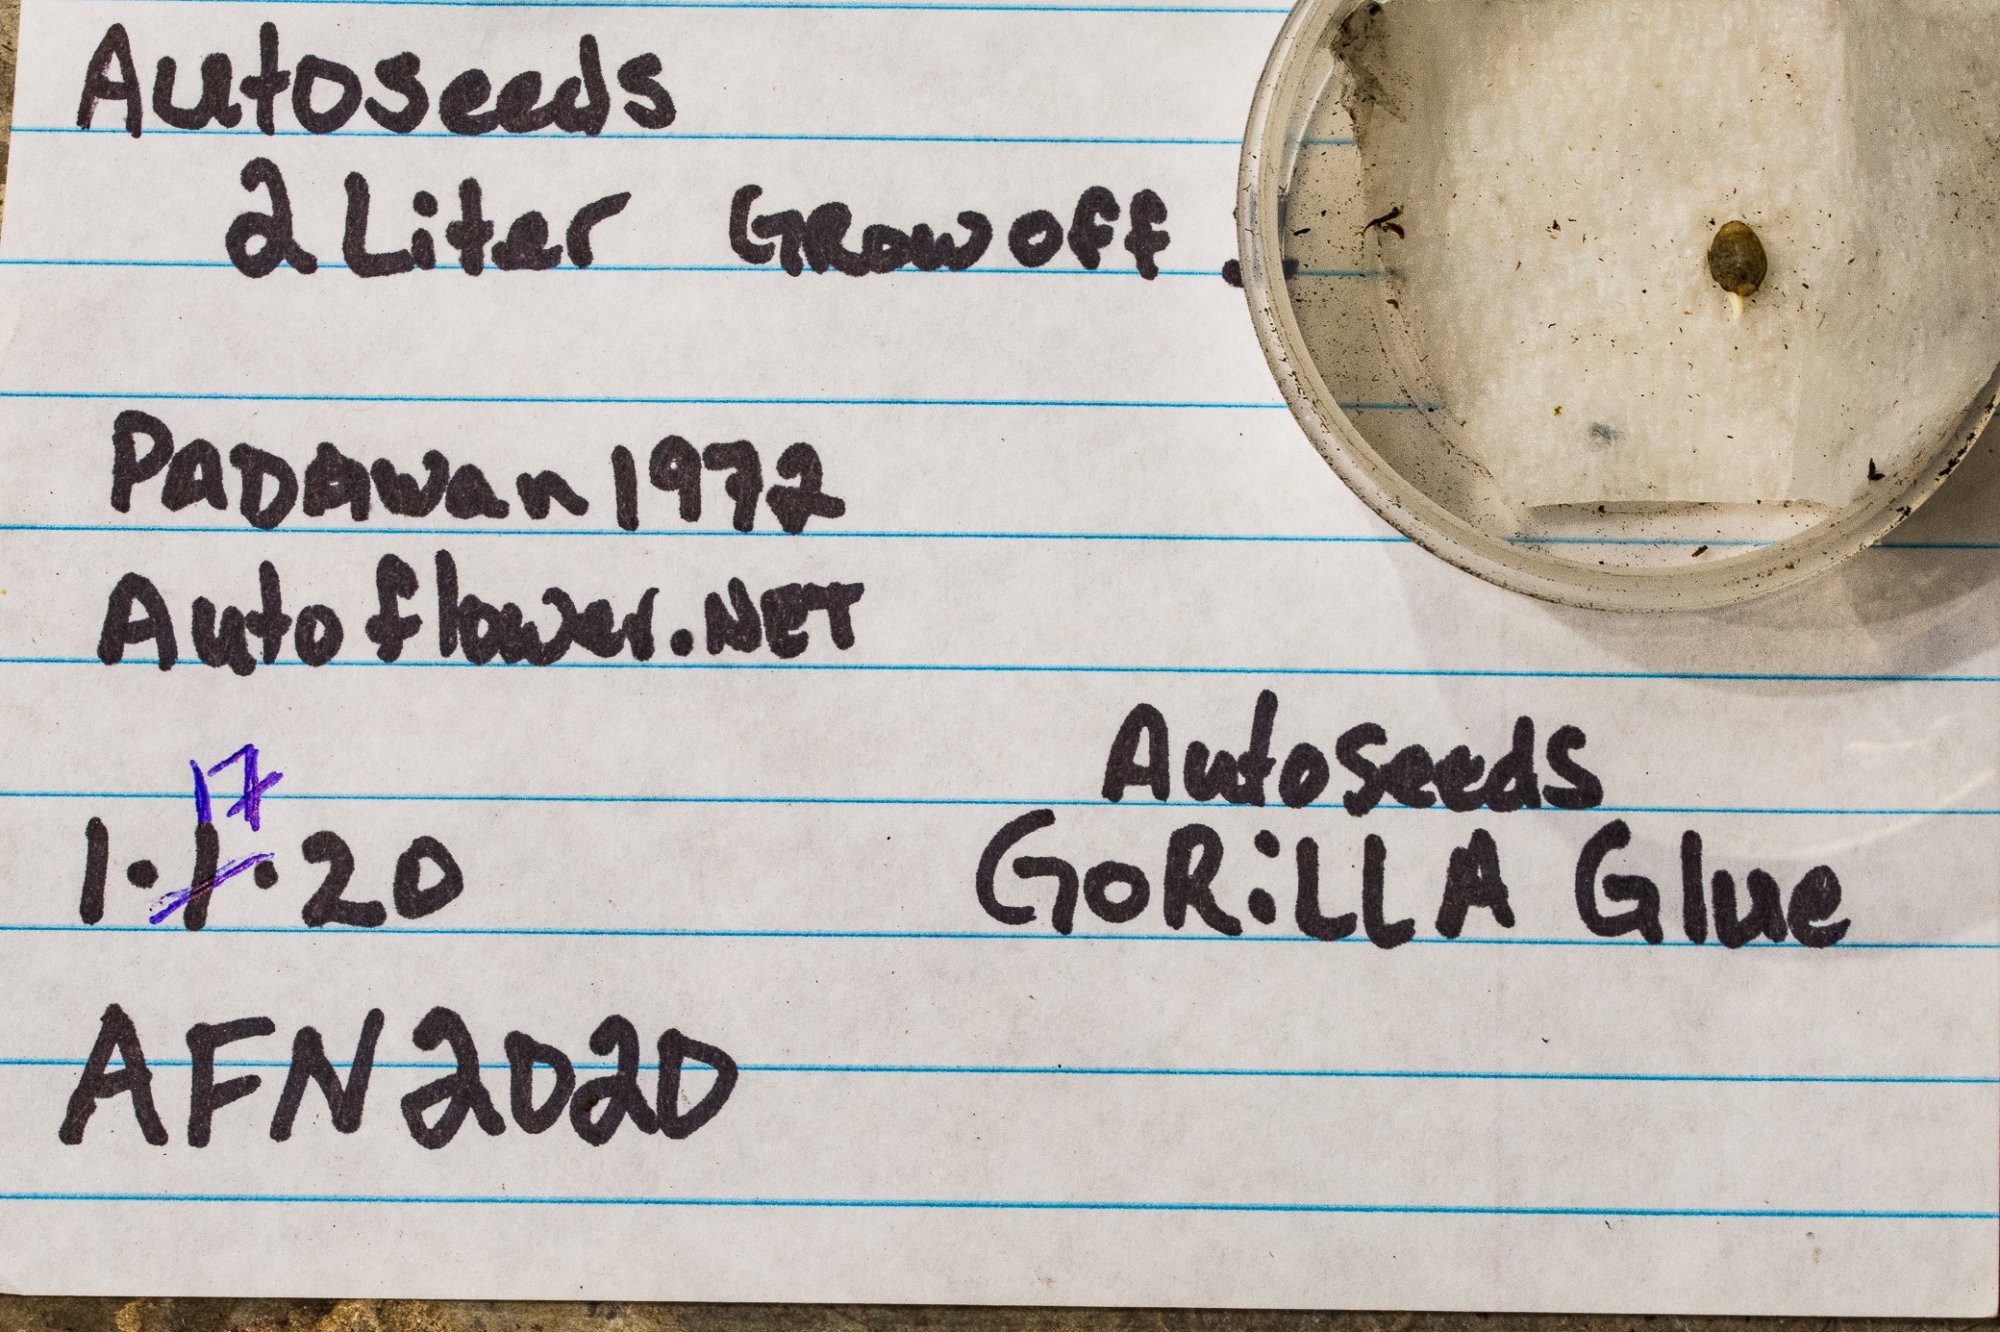 Autoseeds
2 Liter GROW OFF .
PADAwan 1972
Autoflower.NET
17
1.1.20
Autoseeds
GoRiLLA Glue
AFN 2020